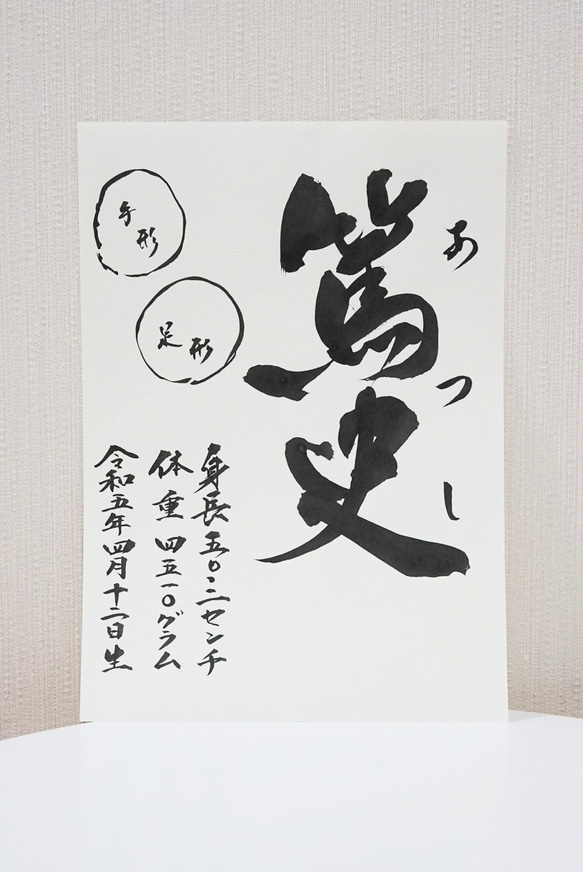 篤史
あつし
身長五〇.二センチ
体重四五一〇グラム
令和五年四月十二日生
手形
足形